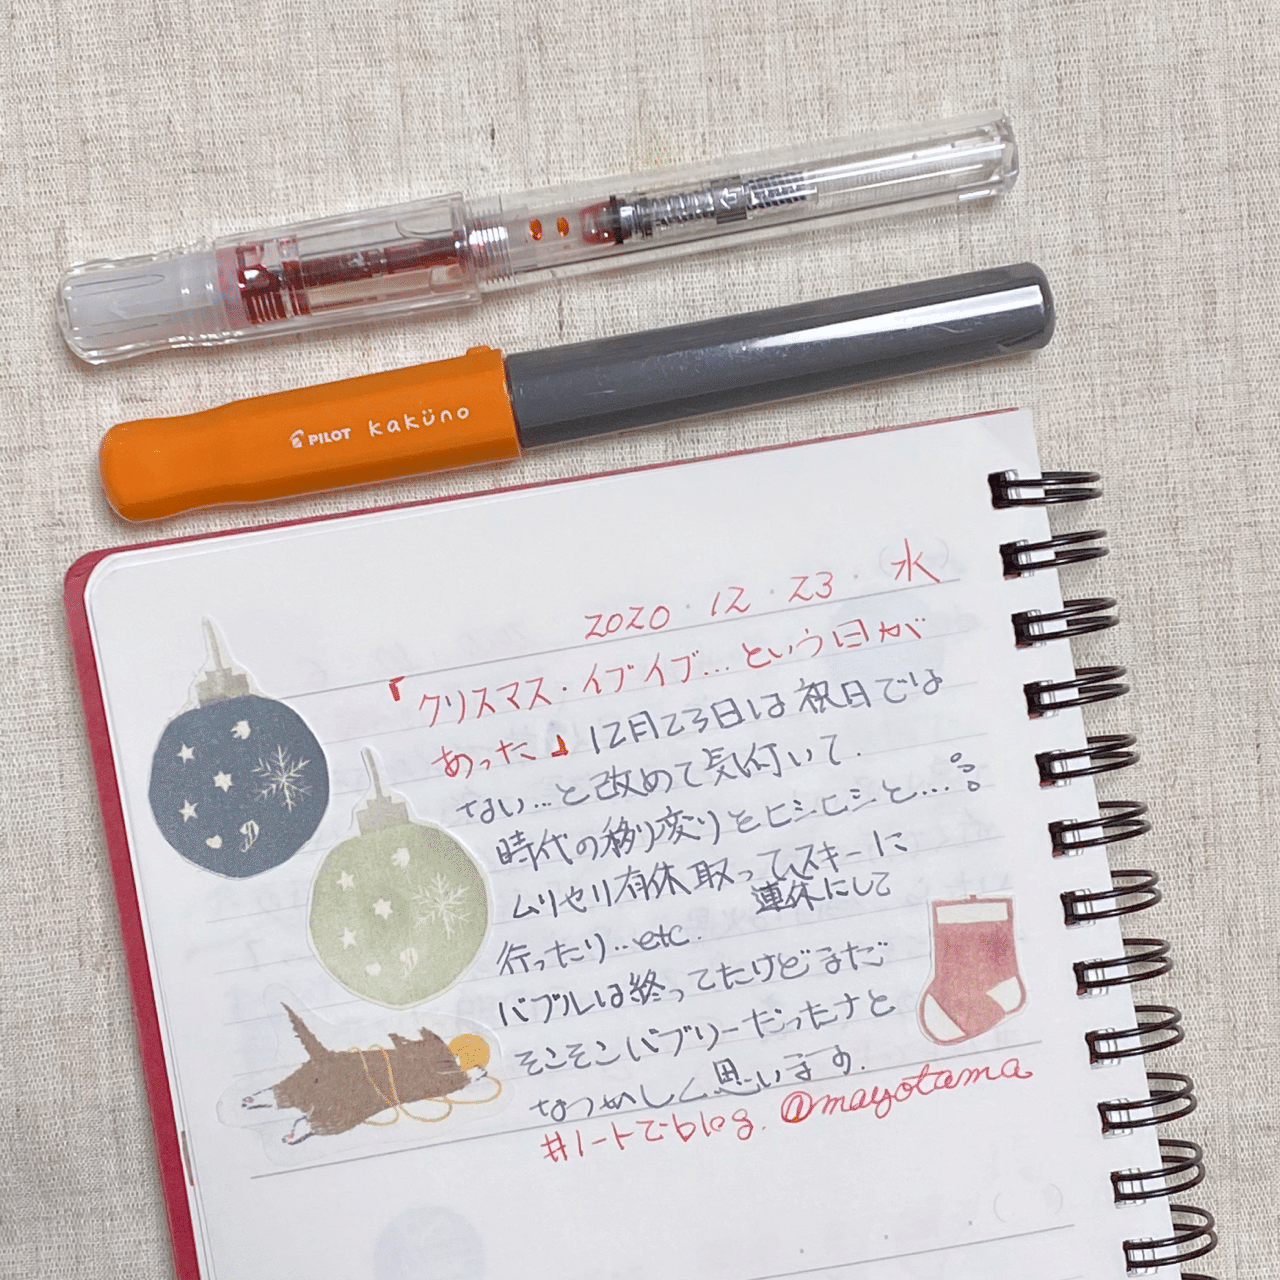 PILOT kaküno
2020・12・23・水
「クリスマス・イブイブ…という日が
あった」12月23日は祝日では
ない…と改めて気付いて.
時代の移り変りをヒシヒシと…
ムリヤリ有休取ってスキーに
連休にして
行ったり…etc.
バブルは終ってたけどまだ
そこそこバブリーだったナと
なつかしく思います.
#ノートでblog. @mayotama